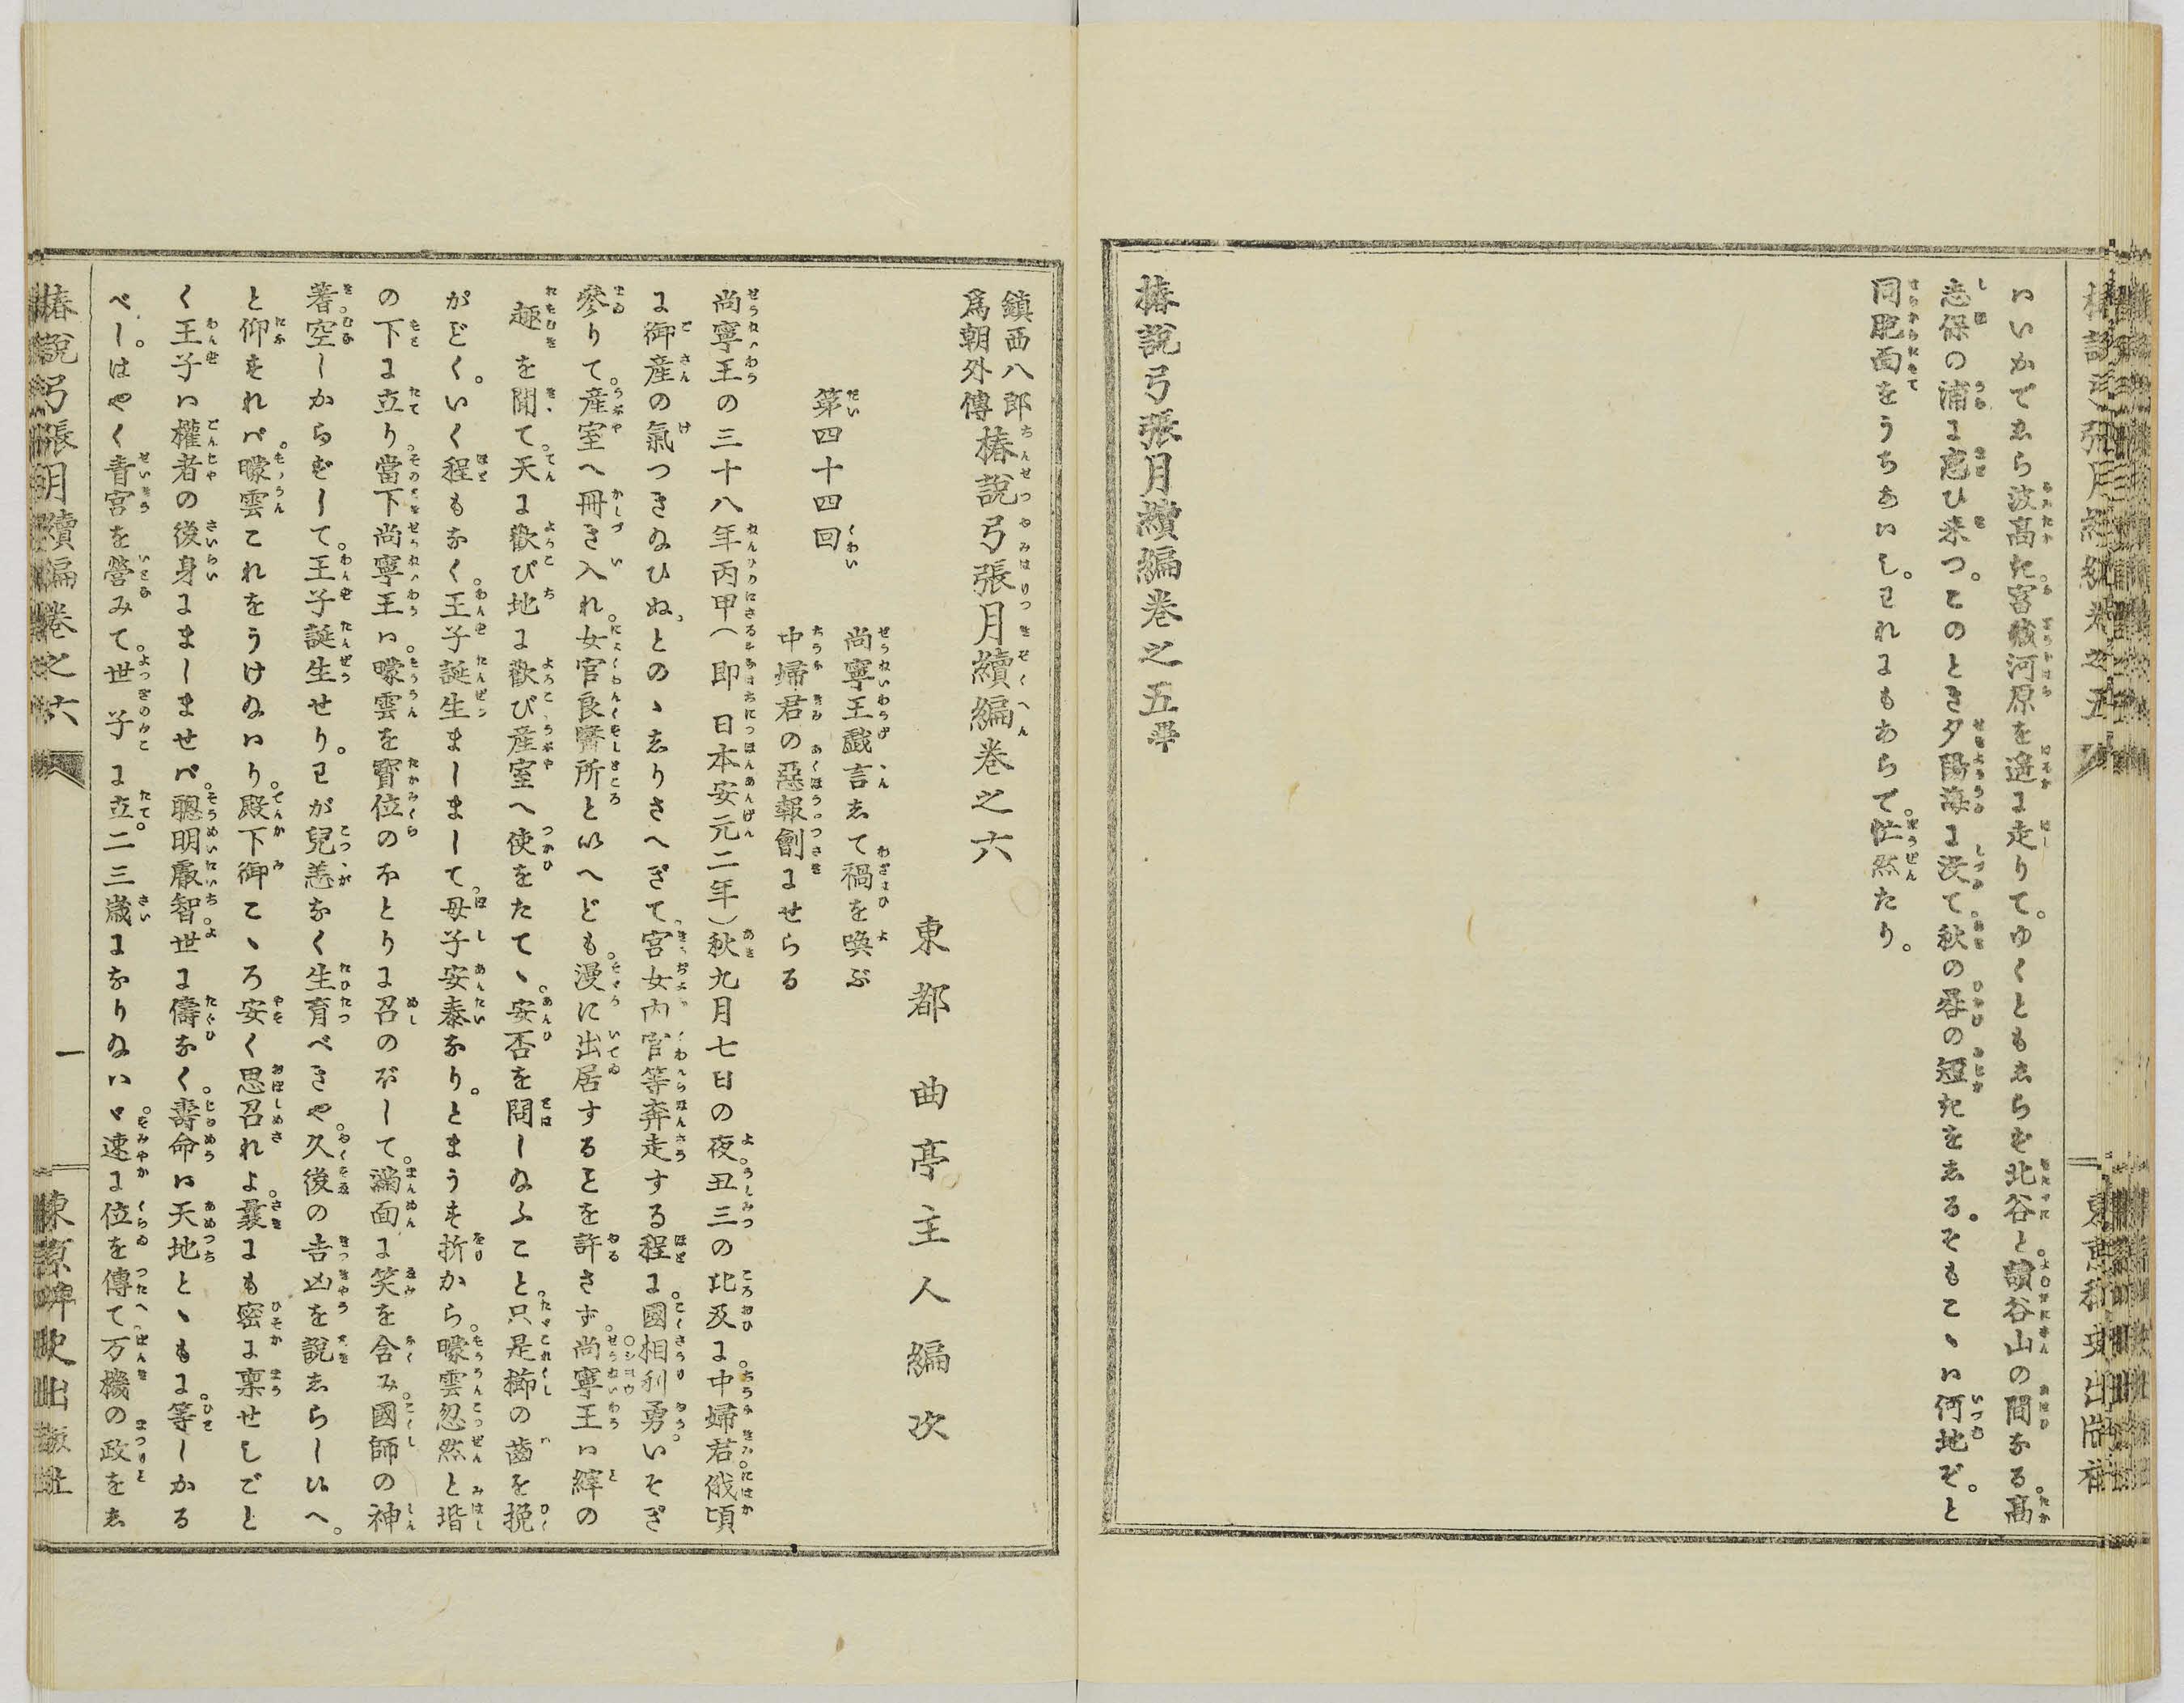 いかでゑら波高た宮城河原を遥に走りて。ゆくともゑらぞ北谷と讀谷山の間なる。髙
志保の浦に惑ひ来つ。このとき夕陽海に没て。秋の昏の短たをゑる。そもこゝハ何地ぞ。と
同胞面をうちあハし。われにもあらで。忙然たり。
椿說弓張月續編巻之五畢
鎮西八郎
爲朝外傳
椿說弓張月續編巻之六
東都 曲亭主人編次
第四十四回
尚寧王戯言ゑて禍を喚ぶ
中婦君の惡報劊にせらる
尚寧王の三十八年丙申(即日本安元二年)秋九月七日の夜。丑三の比及に。中婦君俄頃
に御産の氣つきぬひぬ。とのゝゑりさへぎて。宮女内官等奔走する程に。國相利勇。いそぎ
參りて。産室へ冊き入れ。女官良醫所と以へども。漫に出居するとを許さず。尚寧王ハ縡の
趣を聞て。天に歡び地に歡び産室へ使をたてゝ。安否を問しぬふこと。只是櫛の齒を挽
がごく。いく程もなく。王子誕生ましまして。母子安泰なり。とまうす折から。曚雲忽然と堦
の下に立り。當下尚寧王ハ。曚雲を寳位のほとりに召のぼして。滿面に笑を含み。國師の神
著。空しからずして。王子誕生せり。わが兒恙なく生育べきや。久後の吉凶を說ゑらし以へ。
と仰すれバ。曚雲これをうけぬハり。殿下御こゝろ安く思召れよ。曩にも密に稟せしごと
く王子ハ權者の後身にましませバ。聰明叡智。世に儔なく。壽命ハ天地とゝもに。等しかる
べし。はやく青宮を營みて。世子に立て。二三歳になりぬハヾ。速に位を傳て万機の政をゑ
椿說弓張月續編巻之六
一
東京稗史出版社